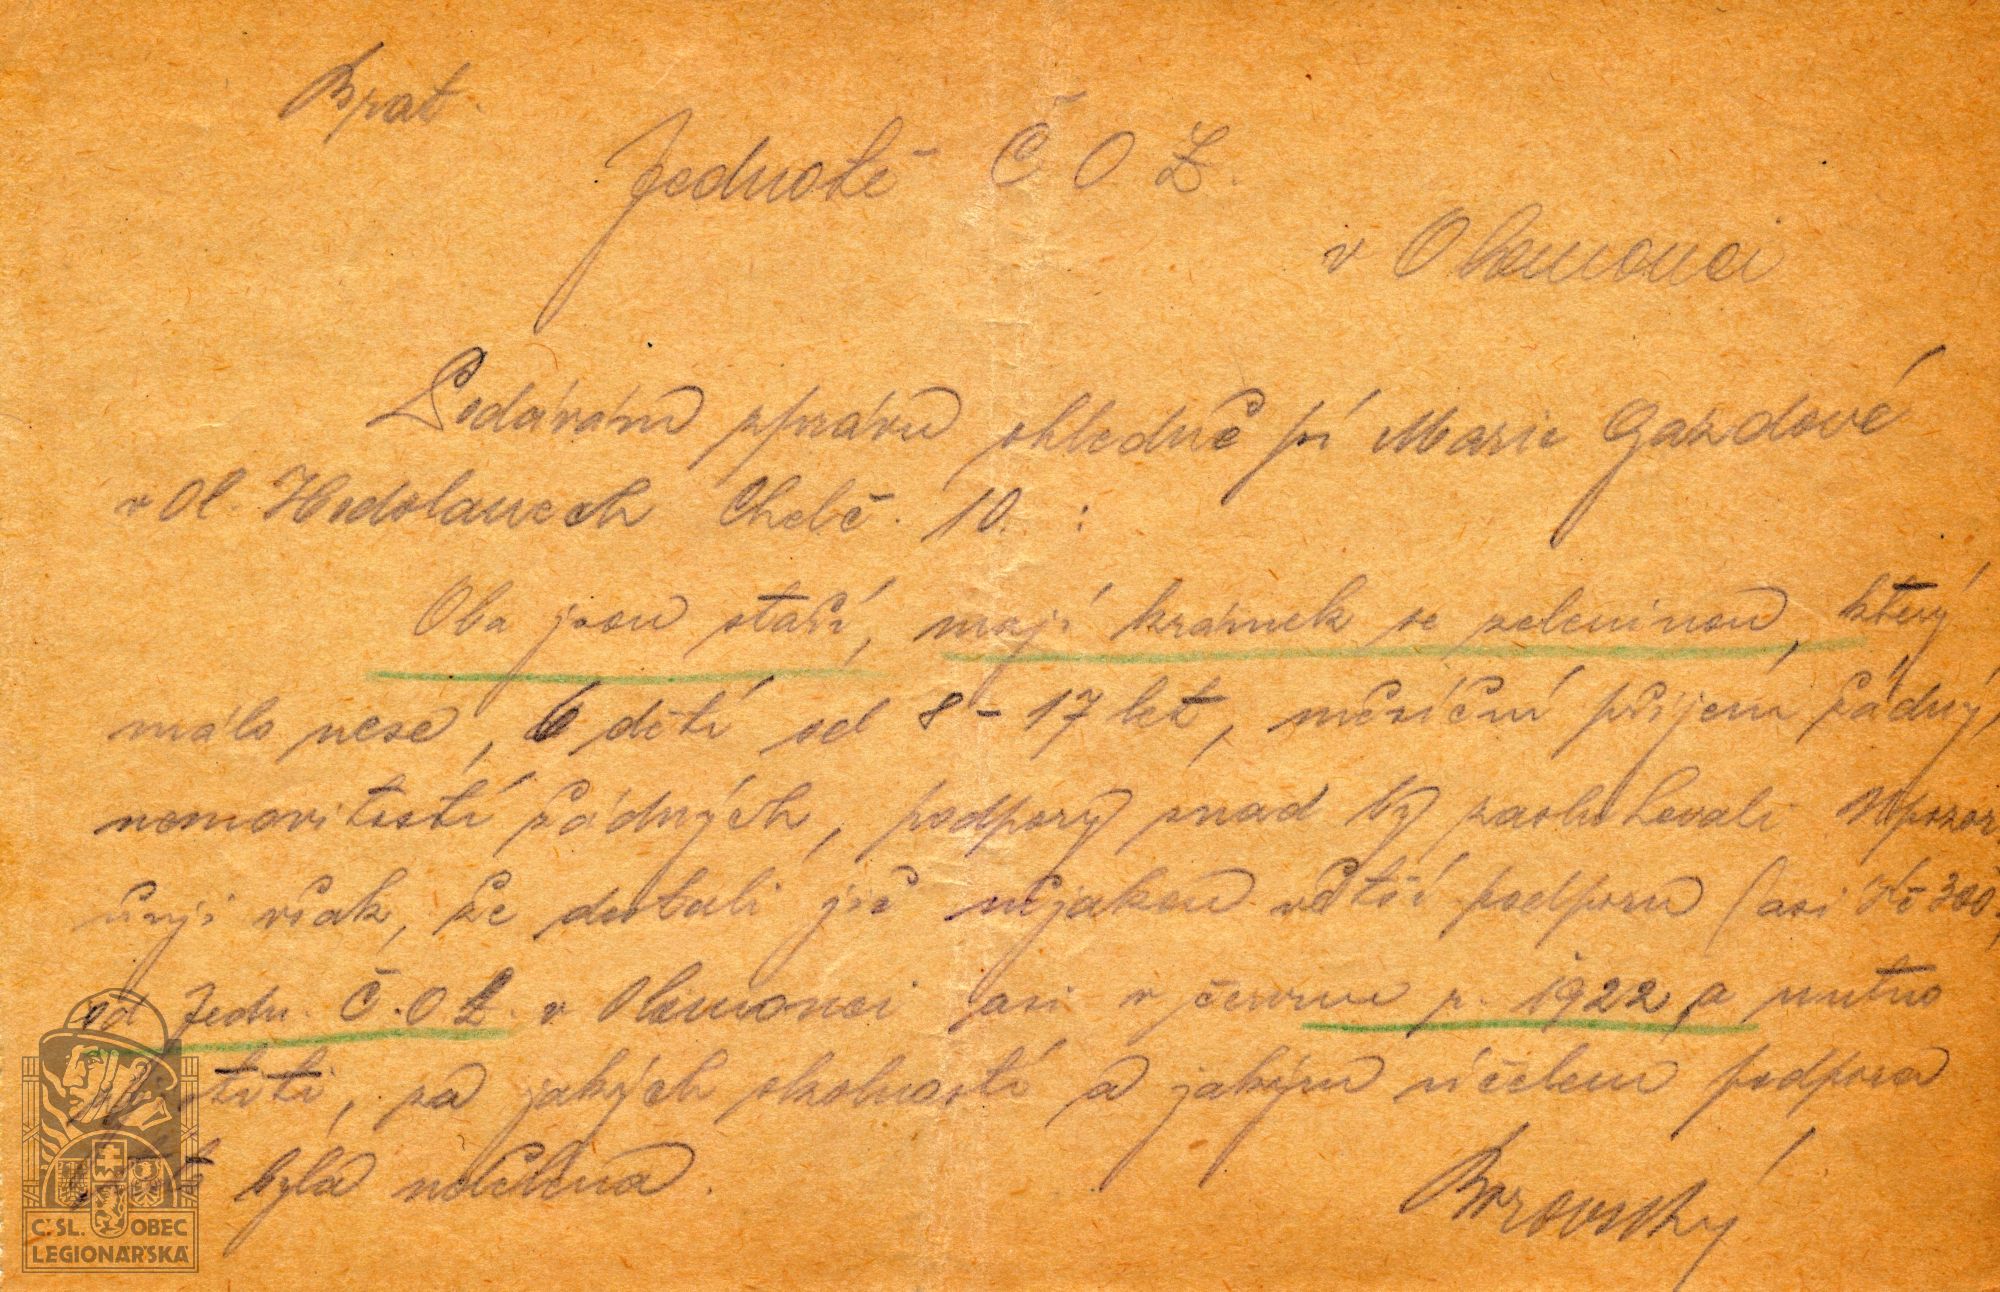 Brat.
Jednotě Č O L.
v Olomouci
Podávám zprávu ohledně pí Marie Gazdové
v Ol. Hodolanech Chelč. 10. :
Oba jsou staří, mají krámek se zeleninou, který
málo nese, 6 dětí od 8 – 17 let, měsíční příjem žádný,
nemovitostí žádných, podpory snad by zasluhovali Upozor
ňuji však, že dostali již nějakou větší podporu (asi Kč 300,
od Jedn. Č.O.L. v Olomouci asi v červnu r. 1922, a nutno
zjistiti, za jakých okolností a jakým účelem podpora
jetě byla udělena.
Brzovský
Č.SL. OBEC
LEGIONÁŘSKÁ